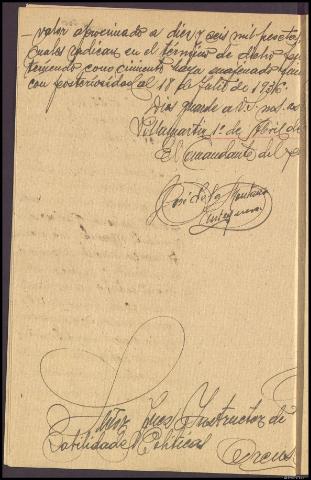 valor aproximado a diez y seis mil pesetas
cuales radican en el termino de dicho
teniendo conocimiento haya enagenado
con posterioridad al 18 de Julio de 1936
Dios guarde a Vd. ms. as
Villamartin 1º de Abril de
El Comandante del
José de la
Señor Juez Instructor de
sabilidades Politicas
Arcos